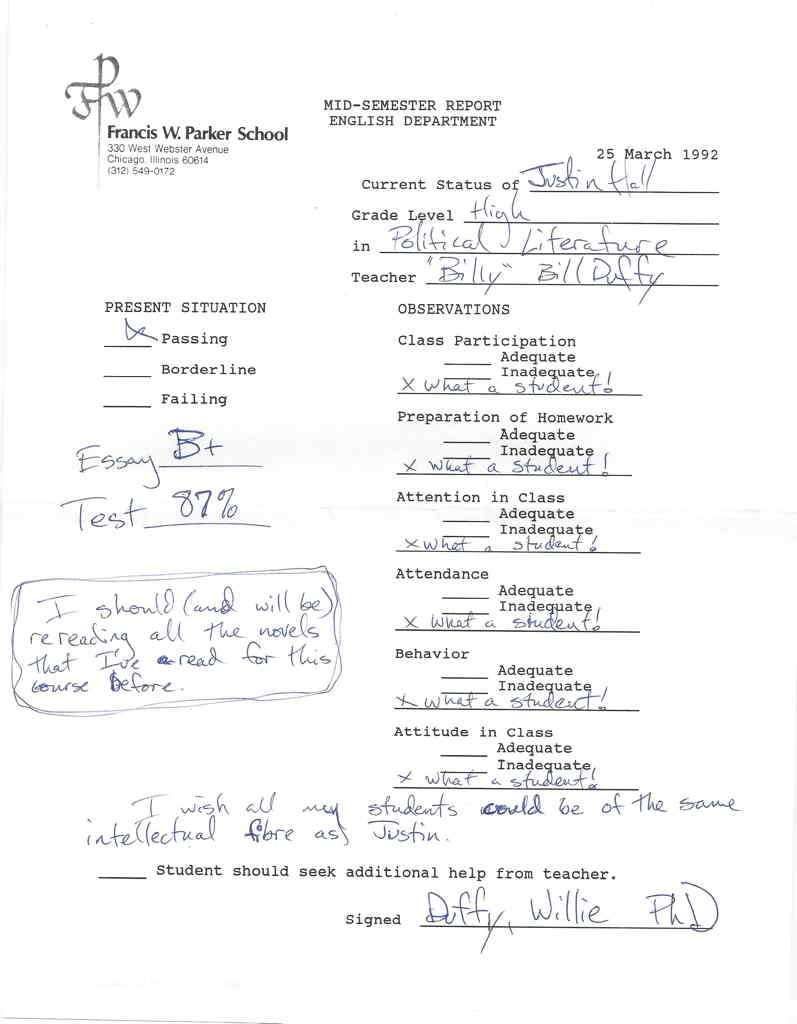 FPW
Francis W. Parker School
330 West Webster Avenue
Chicago, Illinois 60614
(312) 549-0172
MID-SEMESTER REPORT
ENGLISH DEPARTMENT
25 March 1992
Current Status of Justin Hall
Grade Level High
in Political Literature
Teacher "Billy" Bill Duffy
PRESENT SITUATION
Passing
Borderline
Failing
Essay B+
Test 87%
I should (and will be)
rereading all the novels
that I've read for this
course before.
OBSERVATIONS
Class Participation
Adequate
Inadequate
x what a student!
Preparation of Homework
Adequate
Inadequate
x what a student!
Attention in Class
Adequate
Inadequate
x what a student!
Attendance
Adequate
Inadequate
x what a student!
Behavior
Adequate
Inadequate
x what a student!
Attitude in Class
Adequate
Inadequate
x what a student!
I wish all my students could be of the same
intellectual fibre as Justin.
Student should seek additional help from teacher.
Signed Duffy, Willie PhD